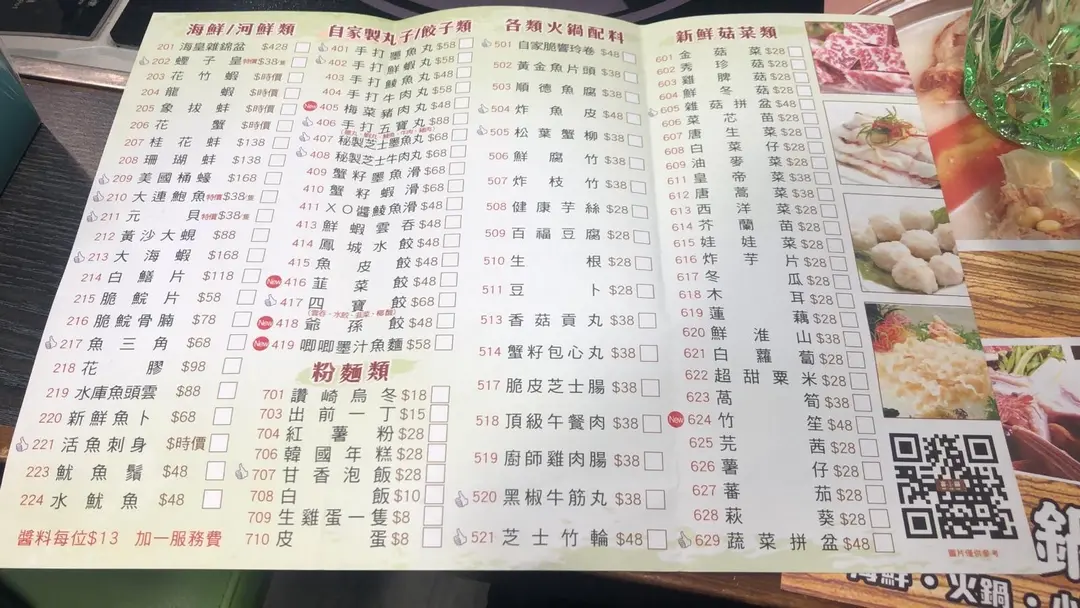 海鮮/河鮮類
201 海皇雜錦盆 $428
202 蟶子皇 特價$38/隻
203 花竹蝦 $時價
204 龍蝦 $時價
205 象拔蚌 $時價
206 花蟹 $時價
207 桂花蚌 $138
208 珊瑚蚌 $138
209 美國桶蠔 $168
210 大連鮑魚 特價$38/隻
211 元貝 特價$38/隻
212 黃沙大蜆 $88
213 大海蝦 $168
214 白鱔片 $118
215 脆鯇片 $58
216 脆鯇骨腩 $78
217 魚三角 $68
218 花膠 $98
219 水庫魚頭雲 $88
220 新鮮魚卜 $68
221 活魚刺身 $時價
223 魷魚鬚 $48
224 水魷魚 $48
醬料每位$13 加一服務費
自家製丸子/餃子類
401 手打墨魚丸 $58
402 手打鮮蝦丸 $58
403 手打鯪魚丸 $48
404 手打牛肉丸 $58
New 405 梅菜豬肉丸 $48
406 手打五寶丸 $88
407 秘製芝士墨魚丸 $68
408 秘製芝士牛肉丸 $68
409 蟹籽墨魚滑 $68
410 蟹籽蝦滑 $68
411 XO醬鯪魚滑 $48
413 鮮蝦雲吞 $48
414 鳳城水餃 $48
415 魚皮餃 $48
New 416 韮菜餃 $48
417 四寶餃 $68
New 418 爺孫餃 $48
New 419 唧唧墨汁魚麵 $58
粉麵類
701 讚崎烏冬 $18
703 出前一丁 $15
704 紅薯粉 $28
706 韓國年糕 $28
707 甘香泡飯 $28
708 白飯 $10
709 生雞蛋一隻 $8
710 皮蛋 $8
各類火鍋配料
501 自家脆響玲卷 $48
502 黃金魚片頭 $38
503 順德魚腐 $38
504 炸魚皮 $48
505 松葉蟹柳 $38
506 鮮腐竹 $38
507 炸枝竹 $38
508 健康芋絲 $28
509 百福豆腐 $28
510 生根 $28
511 豆卜 $28
513 香菇貢丸 $38
514 蟹籽包心丸 $38
517 脆皮芝士腸 $38
518 頂級午餐肉 $38
519 廚師雞肉腸 $38
520 黑椒牛筋丸 $38
521 芝士竹輪 $48
新鮮菇菜類
601 金菇菜 $28
602 秀珍菇 $28
603 雞脾菇 $28
604 鮮冬菇 $28
605 雜菇拼盆 $48
606 菜芯苗 $28
607 唐生菜 $28
608 白菜仔 $28
609 油麥菜 $28
611 皇帝菜 $38
612 唐蒿菜 $38
613 西洋菜 $28
614 芥蘭苗 $28
615 娃娃菜 $28
616 炸芋片 $28
617 冬瓜 $28
618 木耳 $28
619 蓮藕 $28
620 鮮淮山 $38
621 白蘿蔔 $28
622 超甜粟米 $28
623 萵筍 $38
New 624 竹笙 $48
625 芫茜 $28
626 薯仔 $28
627 蕃茄 $28
628 萩葵 $28
629 蔬菜拼盆 $48
圖片僅供參考
鍋
海鮮・火鍋・